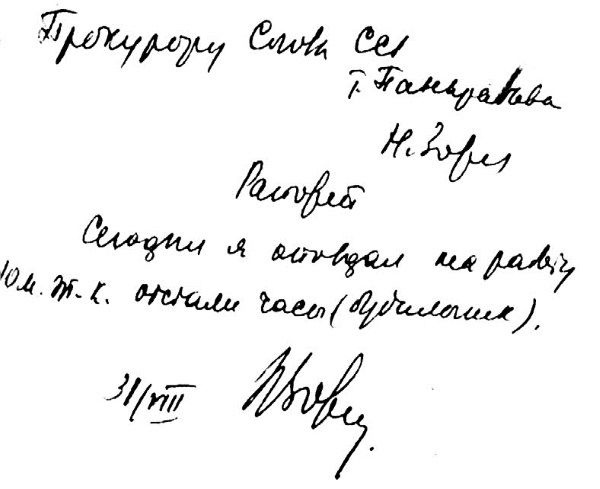 Прокурору
т. Панкратова
Н. Зоря
Рапорт
Сегодня я опоздал на работу
10 м. т. к. отстали часы (будильник).
31/VIII НЗоря